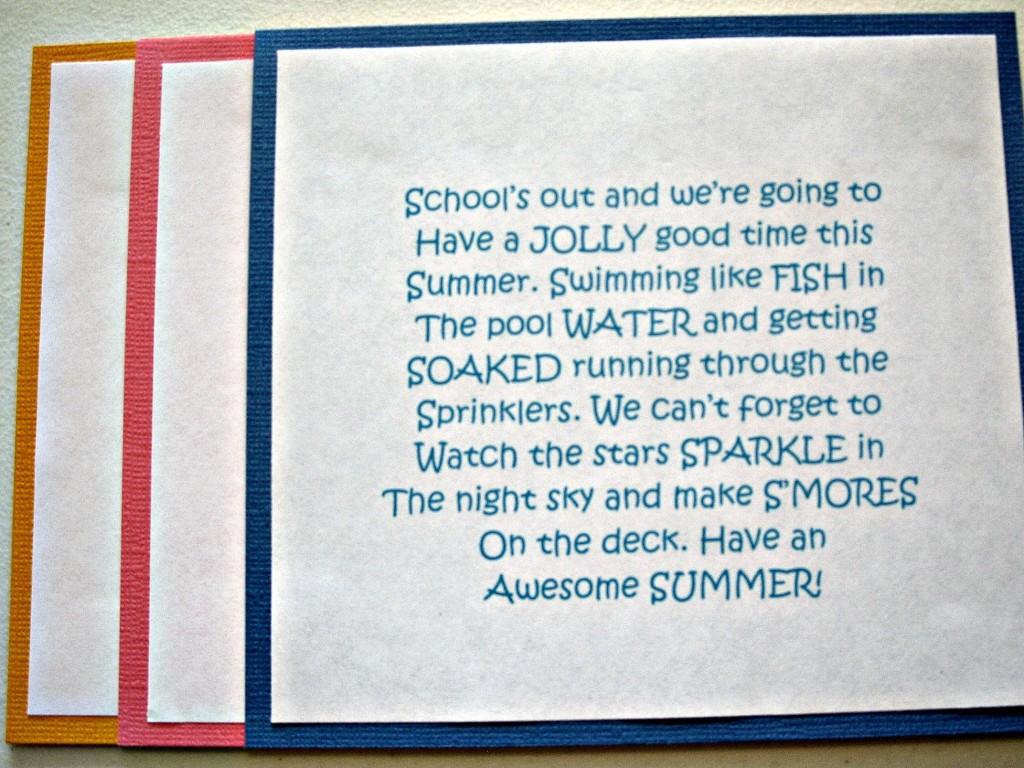 School's out and we're going to
Have a JOLLY good time this
Summer. Swimming like FISH in
The pool WATER and getting
SOAKED running through the
Sprinklers. We can't forget to
Watch the stars SPARKLE in
The night sky and make S'MORES
On the deck. Have an
Awesome SUMMER!